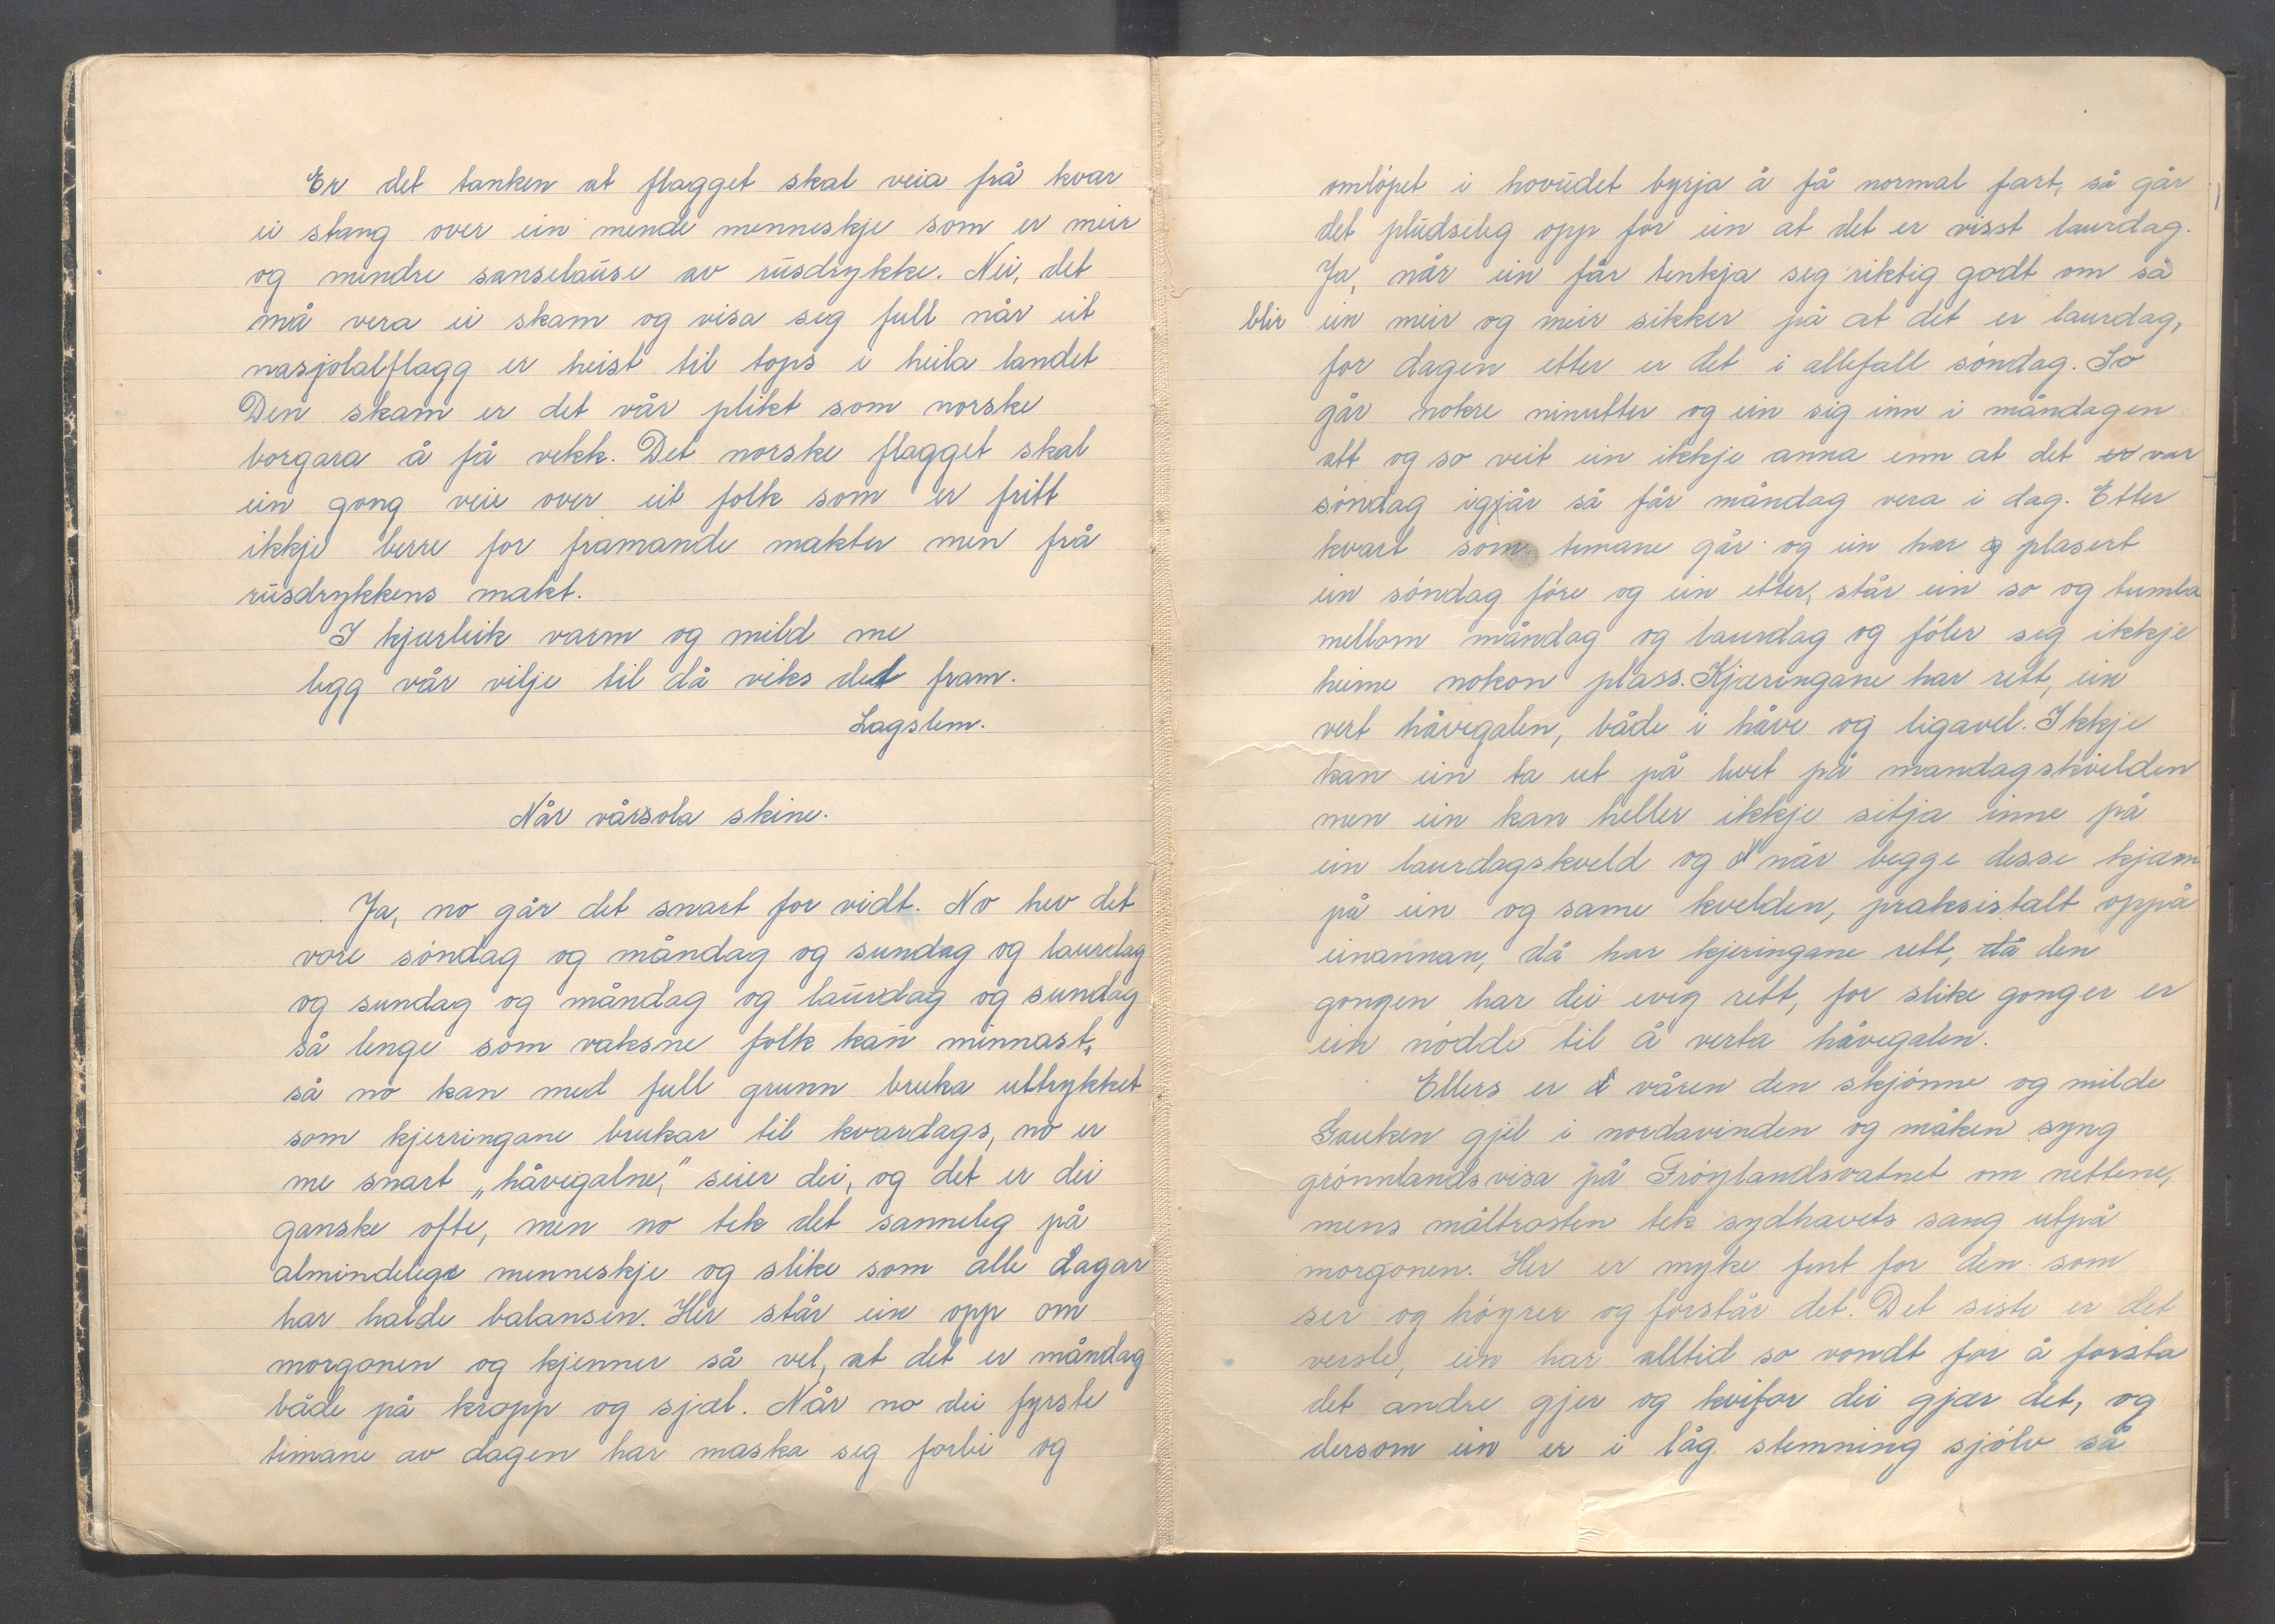 Er det tanken at flagget skal veia frå kvar
ei stang over ein mende menneskje som er meir
og mindre sanselause av rusdrykke. Nei, det
må vera ei skam og visa seg full når eit
nasjolalflagg er heist til tops i heila landet
Den skam er det vår plikt som norske
borgara å få vekk. Det norske flagget skal
ein gong veie over eit folk som er fritt
ikkje berre for framande makter men frå
rusdrykkens makt.
I kjærleik varm og mild me
legg vår vilje til då veks det fram.
Lagslem.
Når vårsola skine.
Ja, no går det snart for vidt. No hev det
vore søndag og måndag og sundag og laurdag
og sundag og måndag og laurdag og sundag
så lenge som vaksne folk kan minnast,
så no kan med full grunn bruka uttrykket
som kjerringane brukar til kvardags, no er
me snart „håvegalne,” seier dei, og det er dei
ganske ofte, men no tek det sanneleg på
almindelege menneskje og slike som alle dagar
har halde balansen. Her står ein opp om
morgonen og kjenner så vel, at det er måndag
både på kropp og sjæl. Når no dei fyrste
timane av dagen har maska seg forbi og
omløpet i hovudet byrja å få normal fart, så går
det pludseleg opp for ein at det er visst laurdag.
Ja, når ein får tenkja seg riktig godt om så
blir ein meir og meir sikker på at det er laurdag,
for dagen etter er det i allefall søndag. So
går nokre minutter og ein sig inn i måndagen
att og so veit ein ikkje anna enn at det er var
søndag igjår så får måndag vera i dag. Etter
kvart som temane går og ein har og plasert
ein søndag føre og ein etter, står ein so og tumla
mellom måndag og laurdag og føler seg ikkje
heime nokon plass. Kjæringane har rett, ein
vert håvegalen, både i håve og ligavel. Ikkje
kan ein ta ut på livet på mandagskvelden
men ein kan heller ikkje sitja inne på
ein laurdagskveld og når begge desse kjem
på ein og same kvelden, praksistalt oppå
einannan, då har kjeringane rett, då den
gongen har dei evig rett, for slike gonger er
ein nødde til å verta håvegalen.
Ellers er våren den skjønne og milde
Gauken gjel i nordavinden og måken syng
grønnlandsvisa på Frøylandsvatnet om nettene,
mens måltrosten tek sydhavets sang utpå
morgonen. Her er myke fint for den som
ser og høyrer og forstår det. Det siste er det
verste, ein har alltid so vondt for å forsta
det andre gjer og kvifor dei gjær det, og
dersom ein er i låg stemning sjølv så